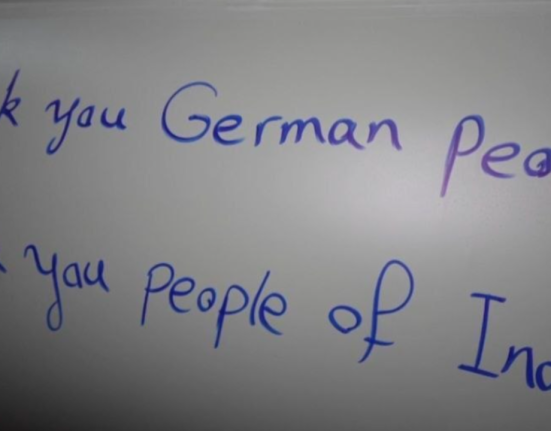 k you German Peo
you people of Ind